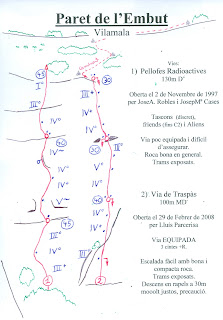 Paret de l'Embut
Vilamala
Vies:
1) Pellofes Radioactives
130m Dº
Oberta el 2 de Novembre 1997
per JoseA. Robles i JosepMª Cases
Tascons (discre),
friends (fins C2) i Aliens
Via poc equipada i difícil
d'assegurar.
Roca bona en general.
Trams exposats.
2) Via de Traspàs
100m MDº
Oberta el 29 de Febrer de 2008
per Lluís Parcerisa
Via EQUIPADA
3 cintes +R.
Escalada fàcil amb bona i
compacta roca.
Trams exposats.
Descens en rapels a 30m
mooolt justos, precaució.
45
Iº
30
IIIº
IVº
IVº
Vº
30
IVº
IVº
IVº
40
IIIº
IIIº
1
2